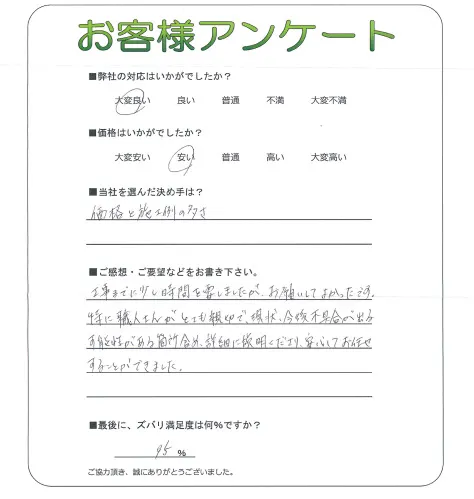 お客様アンケート
■弊社の対応はいかがでしたか？
大変良い 良い 普通 不満 大変不満
■価格はいかがでしたか？
大変安い 安い 普通 高い 大変高い
■当社を選んだ決め手は？
価格と施工例の多さ
■ご感想・ご要望などをお書き下さい。
工事までに少し時間を要しましたが、お願いしてよかったです。
特に職人さんがとても親切で、現状、今後不具合が出る
可能性がある箇所含め、詳細に説明くださり、安心してお任せ
することができました。
■最後に、ズバリ満足度は何%ですか？
95 %
ご協力頂き、誠にありがとうございました。